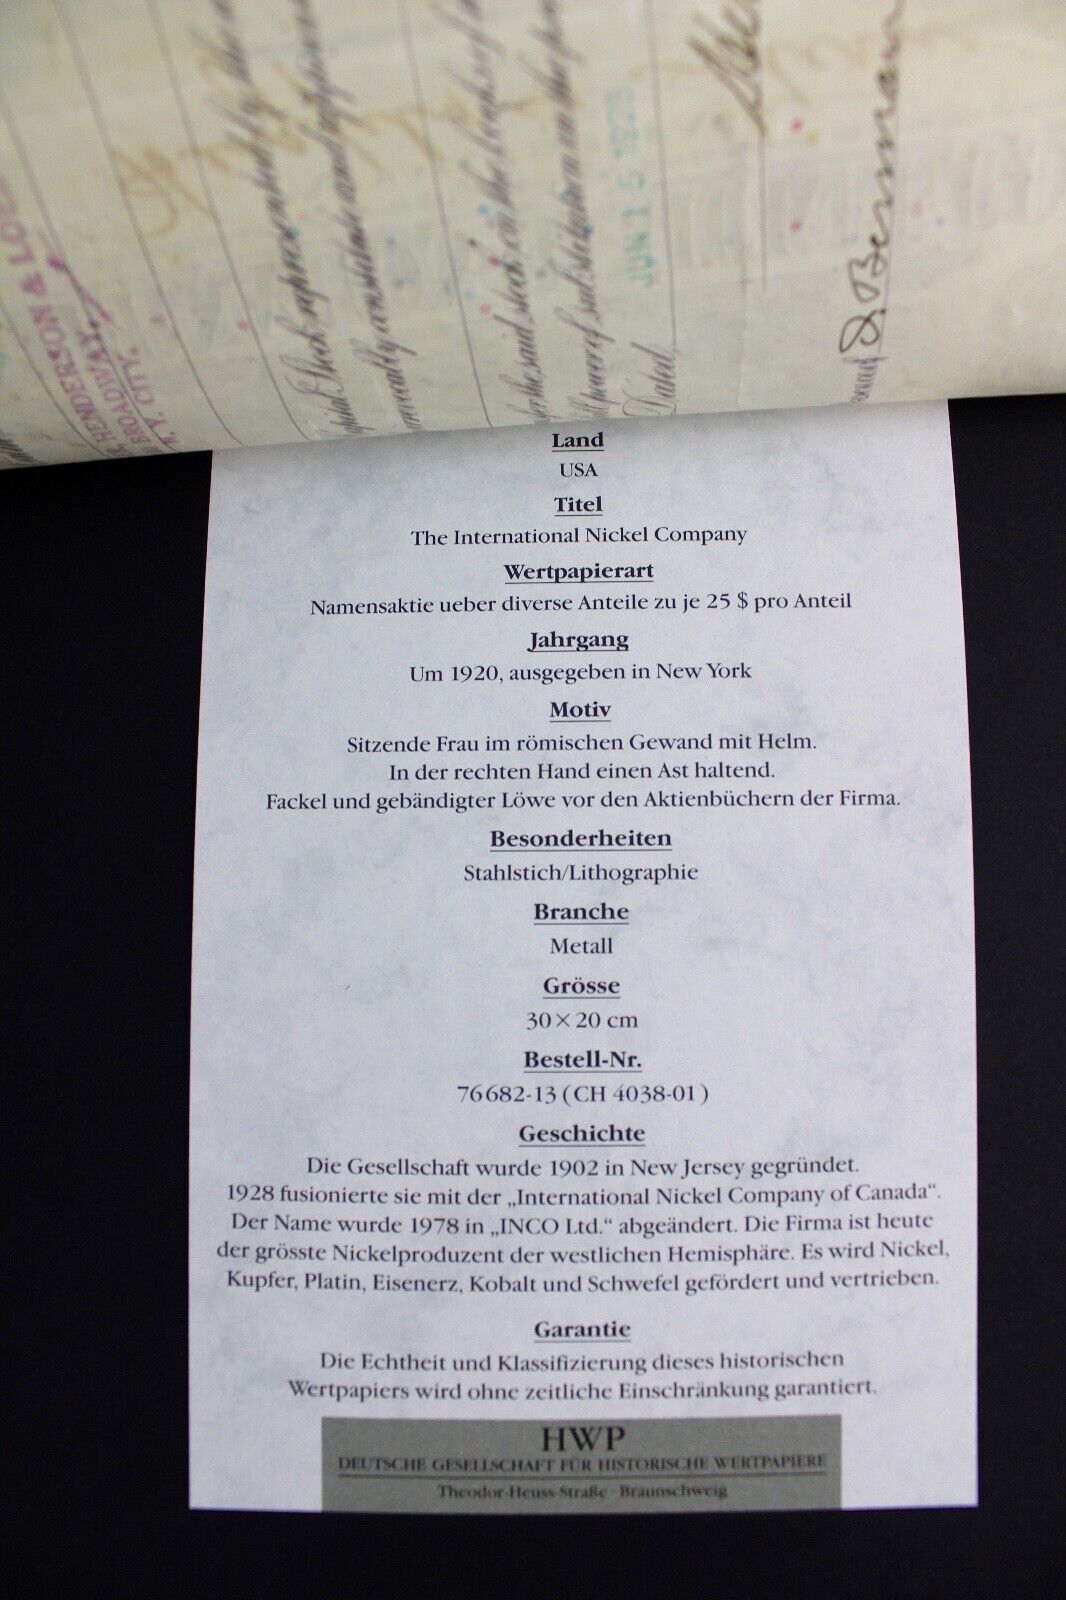 HENDERSON & LOE
BROADWAY,
N. Y. CITY.
Stock represented by the
and appoint
constitute
the said stock on the books of
full power of substitution in the
Dated,
JUN 15
D. Berman
Land
USA
Titel
The International Nickel Company
Wertpapierart
Namensaktie ueber diverse Anteile zu je 25 $ pro Anteil
Jahrgang
Um 1920, ausgegeben in New York
Motiv
Sitzende Frau im römischen Gewand mit Helm.
In der rechten Hand einen Ast haltend.
Fackel und gebändigter Löwe vor den Aktienbüchern der Firma.
Besonderheiten
Stahlstich/Lithographie
Branche
Metall
Grösse
30 × 20 cm
Bestell-Nr.
76 682-13 ( CH 4038-01 )
Geschichte
Die Gesellschaft wurde 1902 in New Jersey gegründet.
1928 fusionierte sie mit der „International Nickel Company of Canada“.
Der Name wurde 1978 in „INCO Ltd.“ abgeändert. Die Firma ist heute
der grösste Nickelproduzent der westlichen Hemisphäre. Es wird Nickel,
Kupfer, Platin, Eisenerz, Kobalt und Schwefel gefördert und vertrieben.
Garantie
Die Echtheit und Klassifizierung dieses historischen
Wertpapiers wird ohne zeitliche Einschränkung garantiert.
HWP
DEUTSCHE GESELLSCHAFT FÜR HISTORISCHE WERTPAPIERE
Theodor-Heuss-Straße · Braunschweig